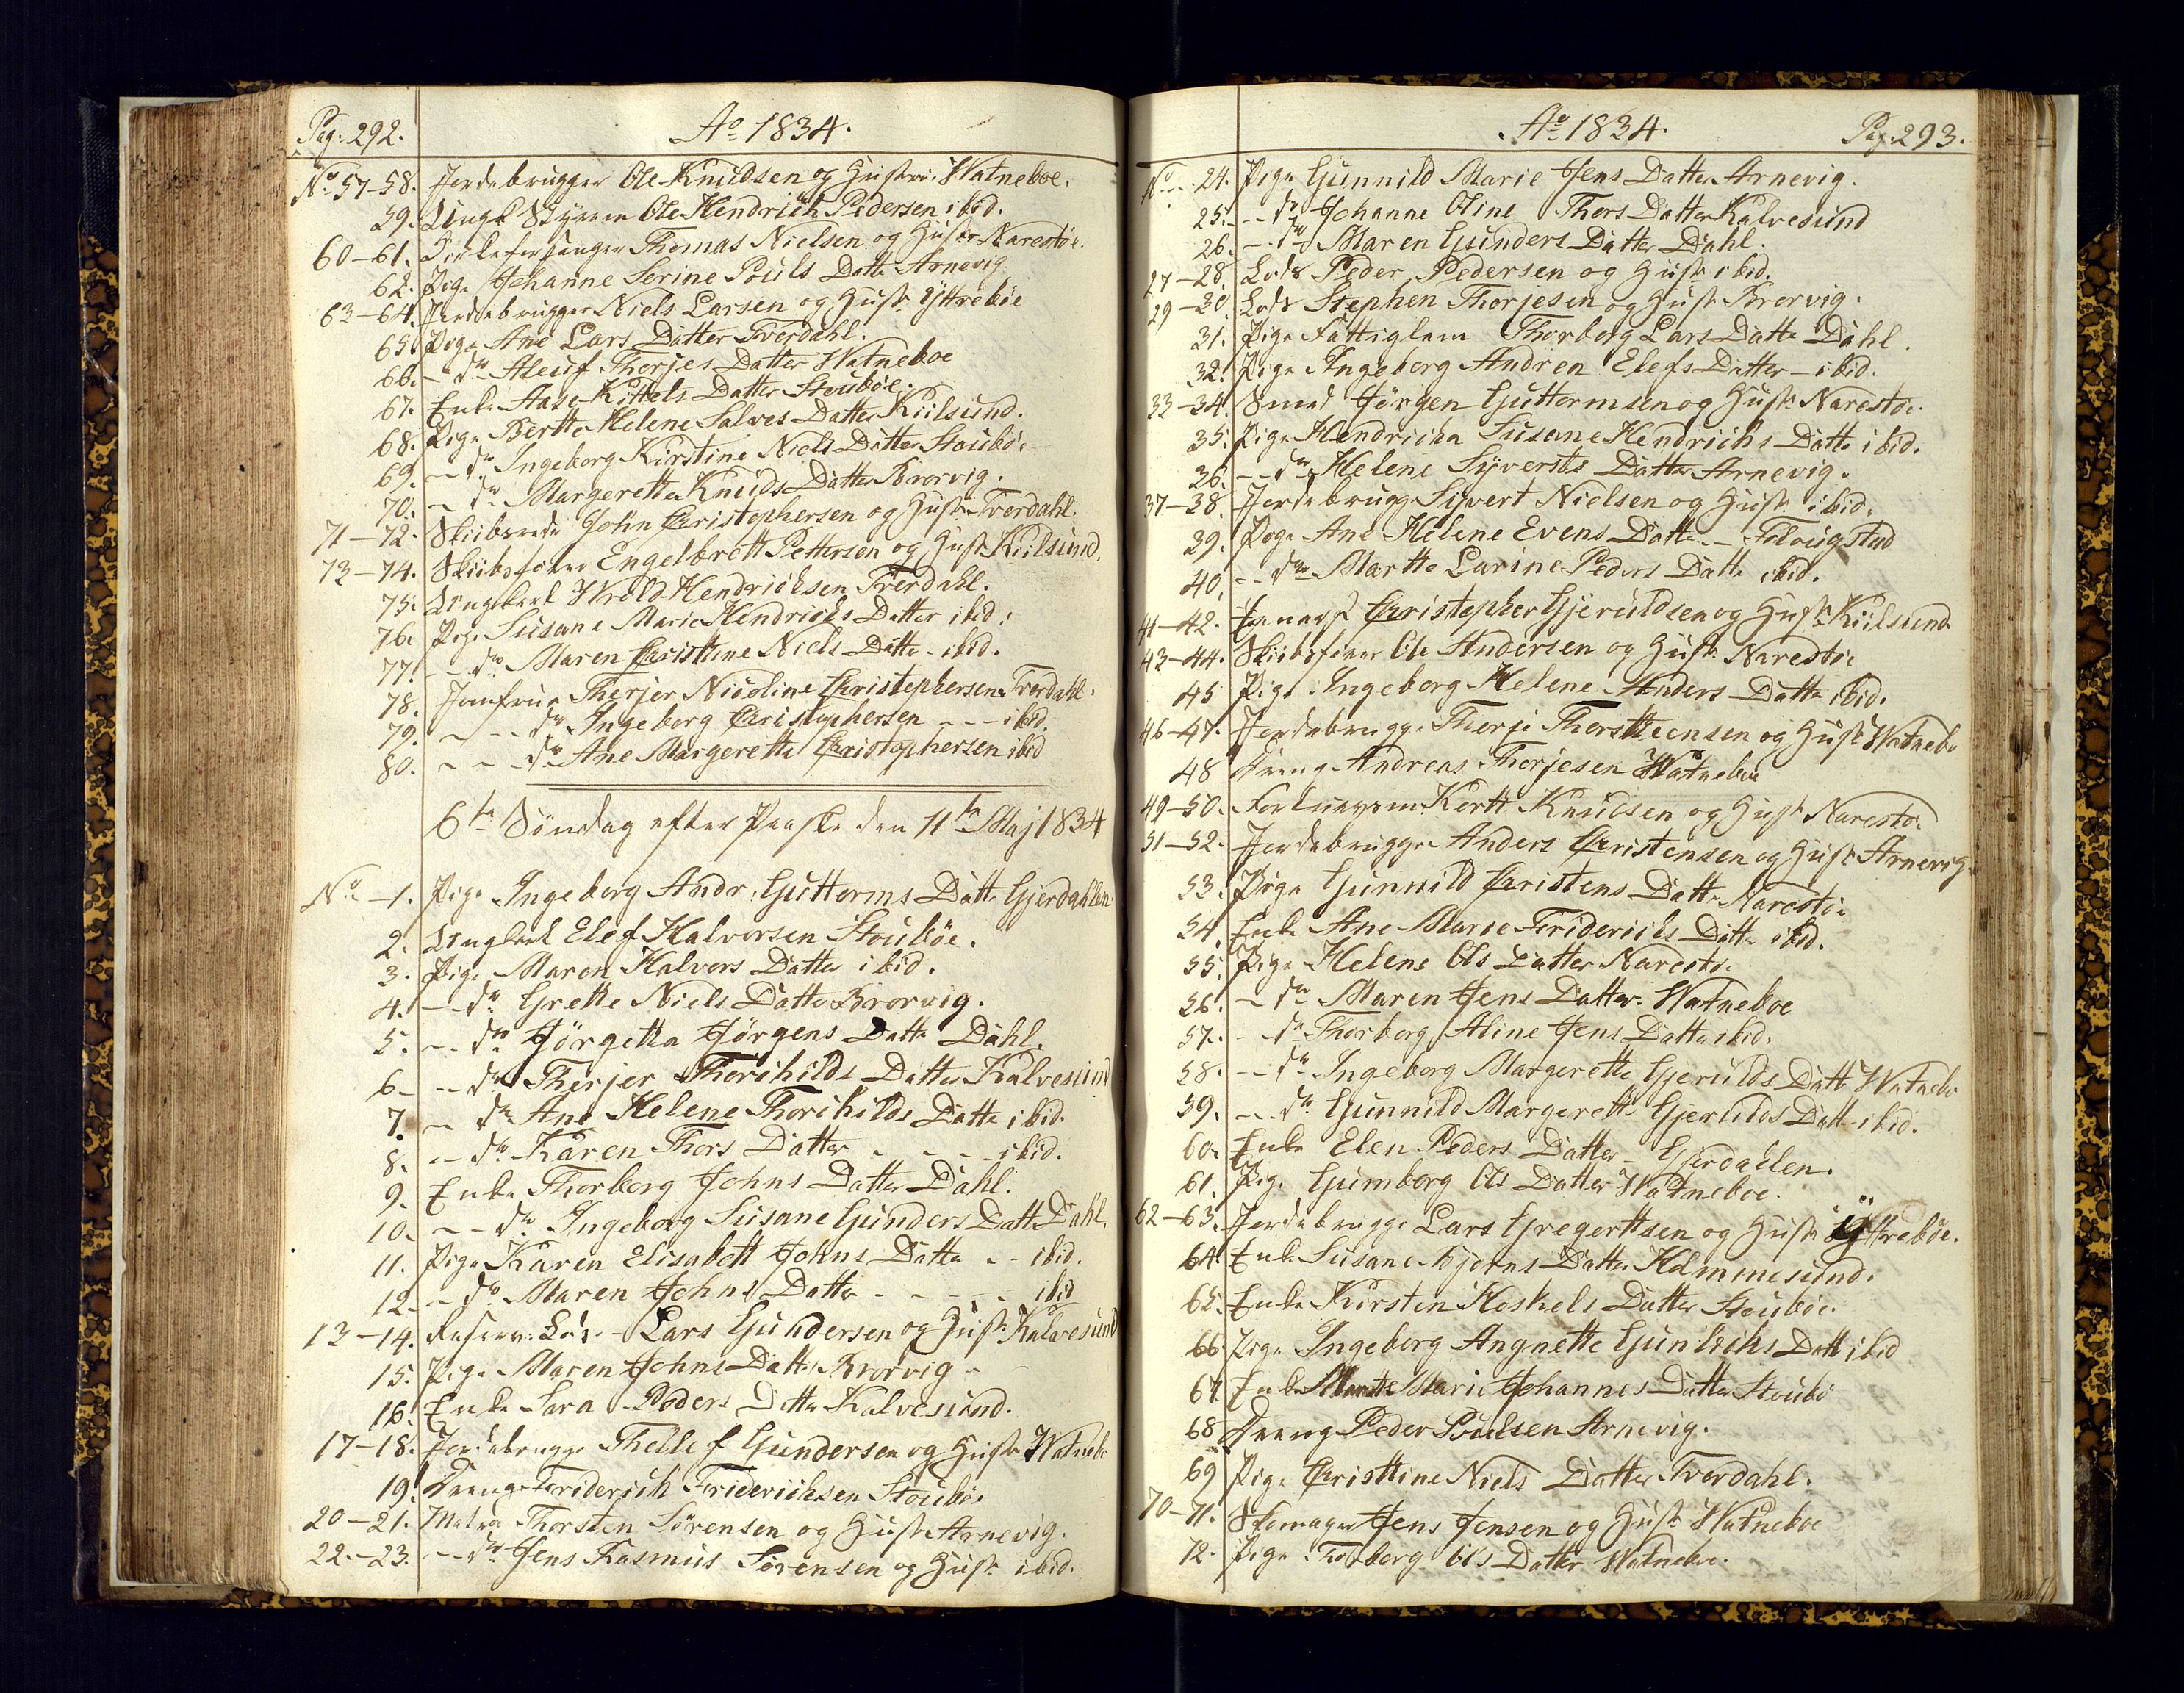 Pag: 292.
Ao 1834.
No 57-58. Jordebrugger Ole Knudsen og Hustrue Watneboe.
59. Ungk Styrm Ole Hendrich Pedersen ibid.
60-61. Kirkesanger Thomas Nielsen og Hustr Narestöe.
62. Pige Johanne Serine Pouls Datte Arnevig.
63-64. Jordebrugger Niels Larsen og Hustr Yttreböe
65. Pige Ane Lars Datter Tverdahl.
66. - do Aleuf Thorjes Datter Watneboe
67. Enke Aase Kittels Datter Stouböe.
68. Pige Berthe Helene Salves Datter Kiilsund.
69. - do Ingeborg Kirstine Niels Datter Stouböe
70. - do Margerethe Knuds Datter Brorvig.
71-72. Skibsrede John Christophersen og Hustr Tverdahl.
73-74. Skibsförer Engelbrett Pettersen og Hust Kiilsund.
75. Ungkarl Wrold Hendrichsen Tverdahl.
76. Pige Susane Marie Hendrichs Datter ibid.
77. - do Maren Christine Niels Datte - ibid.
78. Jomfrue Therjer Nicoline Christophersen Tverdahl.
79. - - do Ingeborg Christophersen - - - ibid.
80. - - do Ane Margerethe Christophersen ibid
6te Söndag efter Paaske den 11te Maj 1834
No -1. Pige Ingeborg Andr: Guttorms Datte Gjerdahlen
2. Ungkarl Elef Halvorsen Stouböe.
3. Pige Maren Halvors Datter ibid.
4. - do Grethe Niels Datte Brorvig.
5. - do Jörgetha Jörgens Datte Dahl.
6. - do Therjer Thorchilds Datter Kalvesund
7. - do Ane Helene Thorchilds Datte ibid.
8. - do Karen Thors Datter - - - ibid.
9. Enke Thorborg Johns Datter Dahl.
10. - - do Ingeborg Susane Gunders Datte Dahl.
11. Pige Karen Elisabett Johns Datte - - ibid.
12. - do Maren Johns Datte - - - - ibid
13-14. Reserv: Lods - Lars Gundersen og Hustr Kalvesund
15. Pige Maren Johns Datte Brorvig -
16. Enke Sara Peders Datte Kalvesund.
17-18. Jordebrugge Thellef Gundersen og Hustr Watnebo
19. Dreng Friderich Friderichsen Stouböe
20-21. Matros Thorsten Sörensen og Hustr Arnevig.
22-23. - do Jens Rasmus Sörensen og Hustr ibid.
Ao 1834.
Pag: 293.
No 24. Pige Gunnild Marie Jens Datter Arnevig.
25. - - do Johanne Oline Thors Datter Kalvesund
26. - - do Maren Gunders Datter Dahl.
27-28. Lods Peder Pedersen og Hustr ibid.
29-30. Lods Stephen Thorjesen og Hustr Brorvig.
31. Pige Fattiglem Thorborg Lars Datte Dahl.
32. Pige Ingeborg Andrea Elefs Datter - ibid.
33-34. Smed Jörgen Guttormsen og Hustr Narestöe.
35. Pige Hendricha Susane Hendrichs Datte ibid.
36. - - do Helene Syverts Datter Arnevig.
37-38. Jordebrugge Sivert Nielsen og Hustr ibid.
39. Pige Ane Helene Evens Datte - - Fölougstad
40. - - do Marthe Larine Peders Datte ibid.
41-42. Christopher Gjeruldsen og Hustr Kiilsund
43-44. Skibsförer Ole Andersen og Hustr Narestöe
45. Pige Ingeborg Helene Anders Datte ibid.
46-47. Jordebrugge Thorje Thorsteensen og Hust Watnebo
48. Dreng Andreas Thorjesen Watneboe
49-50. Kortt Knudsen og Hust Narestöe
51-52. Jordebrugge Anders Christensen og Hust Arnevig.
53. Pige Gunnild Christens Datte Narestöe
54. Enke Ane Marie Friderichs Datte ibid.
55. Pige Helene Ols Datter Narestöe
56. - do Maren Jens Datter Watneboe
57. - do Thorborg Aline Jens Datte ibid.
58. - - do Ingeborg Margerethe Gjerulds Datte Watnebo
59. - - do Gunnild Margerethe Gjerulds Datte ibid.
60. Enke Elen Peders Datter - Gjerdahlen.
61. Pige Gumborg Ols Datter Watneboe.
62-63. Jordebrugge Lars Gregerttsen og Hustr Yttreböe.
64. Enke Susane Bjorns Datter Holmmesund.
65. Enke Kirsten Hoskels Datter Stouböe.
66. Pige Ingeborg Angnethe Gunleichs Datt ibid
67. Enke Marthe Marie Johannes Datter Stouböe
68. Dreng Peder Poulsen Arnevig.
69. Pige Christine Niels Datter Tverdahl.
70-71. Skomager Jens Jensen og Hustr Watneboe
72. Pige Thorborg Ols Datter Watneboe.